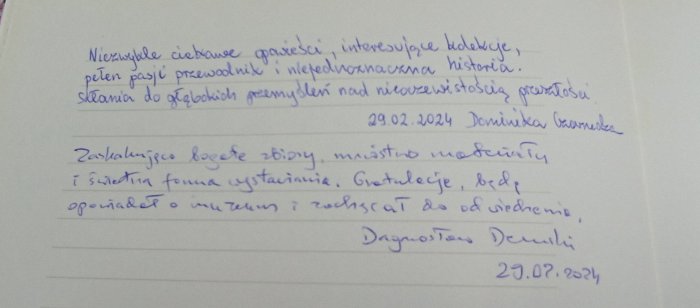 Niezwykle ciekawe opowieści, interesujące kolekcje,
pełen pasji przewodnik i niejednoznaczna historia.
Skłania do głębokich przemyśleń nad nieoczewistością przeszłości.
29.02.2024 Dominika Czarnecka
Zaskakująco bogate zbiory, mnóstwo
i świetna forma wystawiania. Gratulacje, będę
opowiadał o muzeum i zachęcał do odwiedzenia,
Dagnosław Demski
29.02.2024